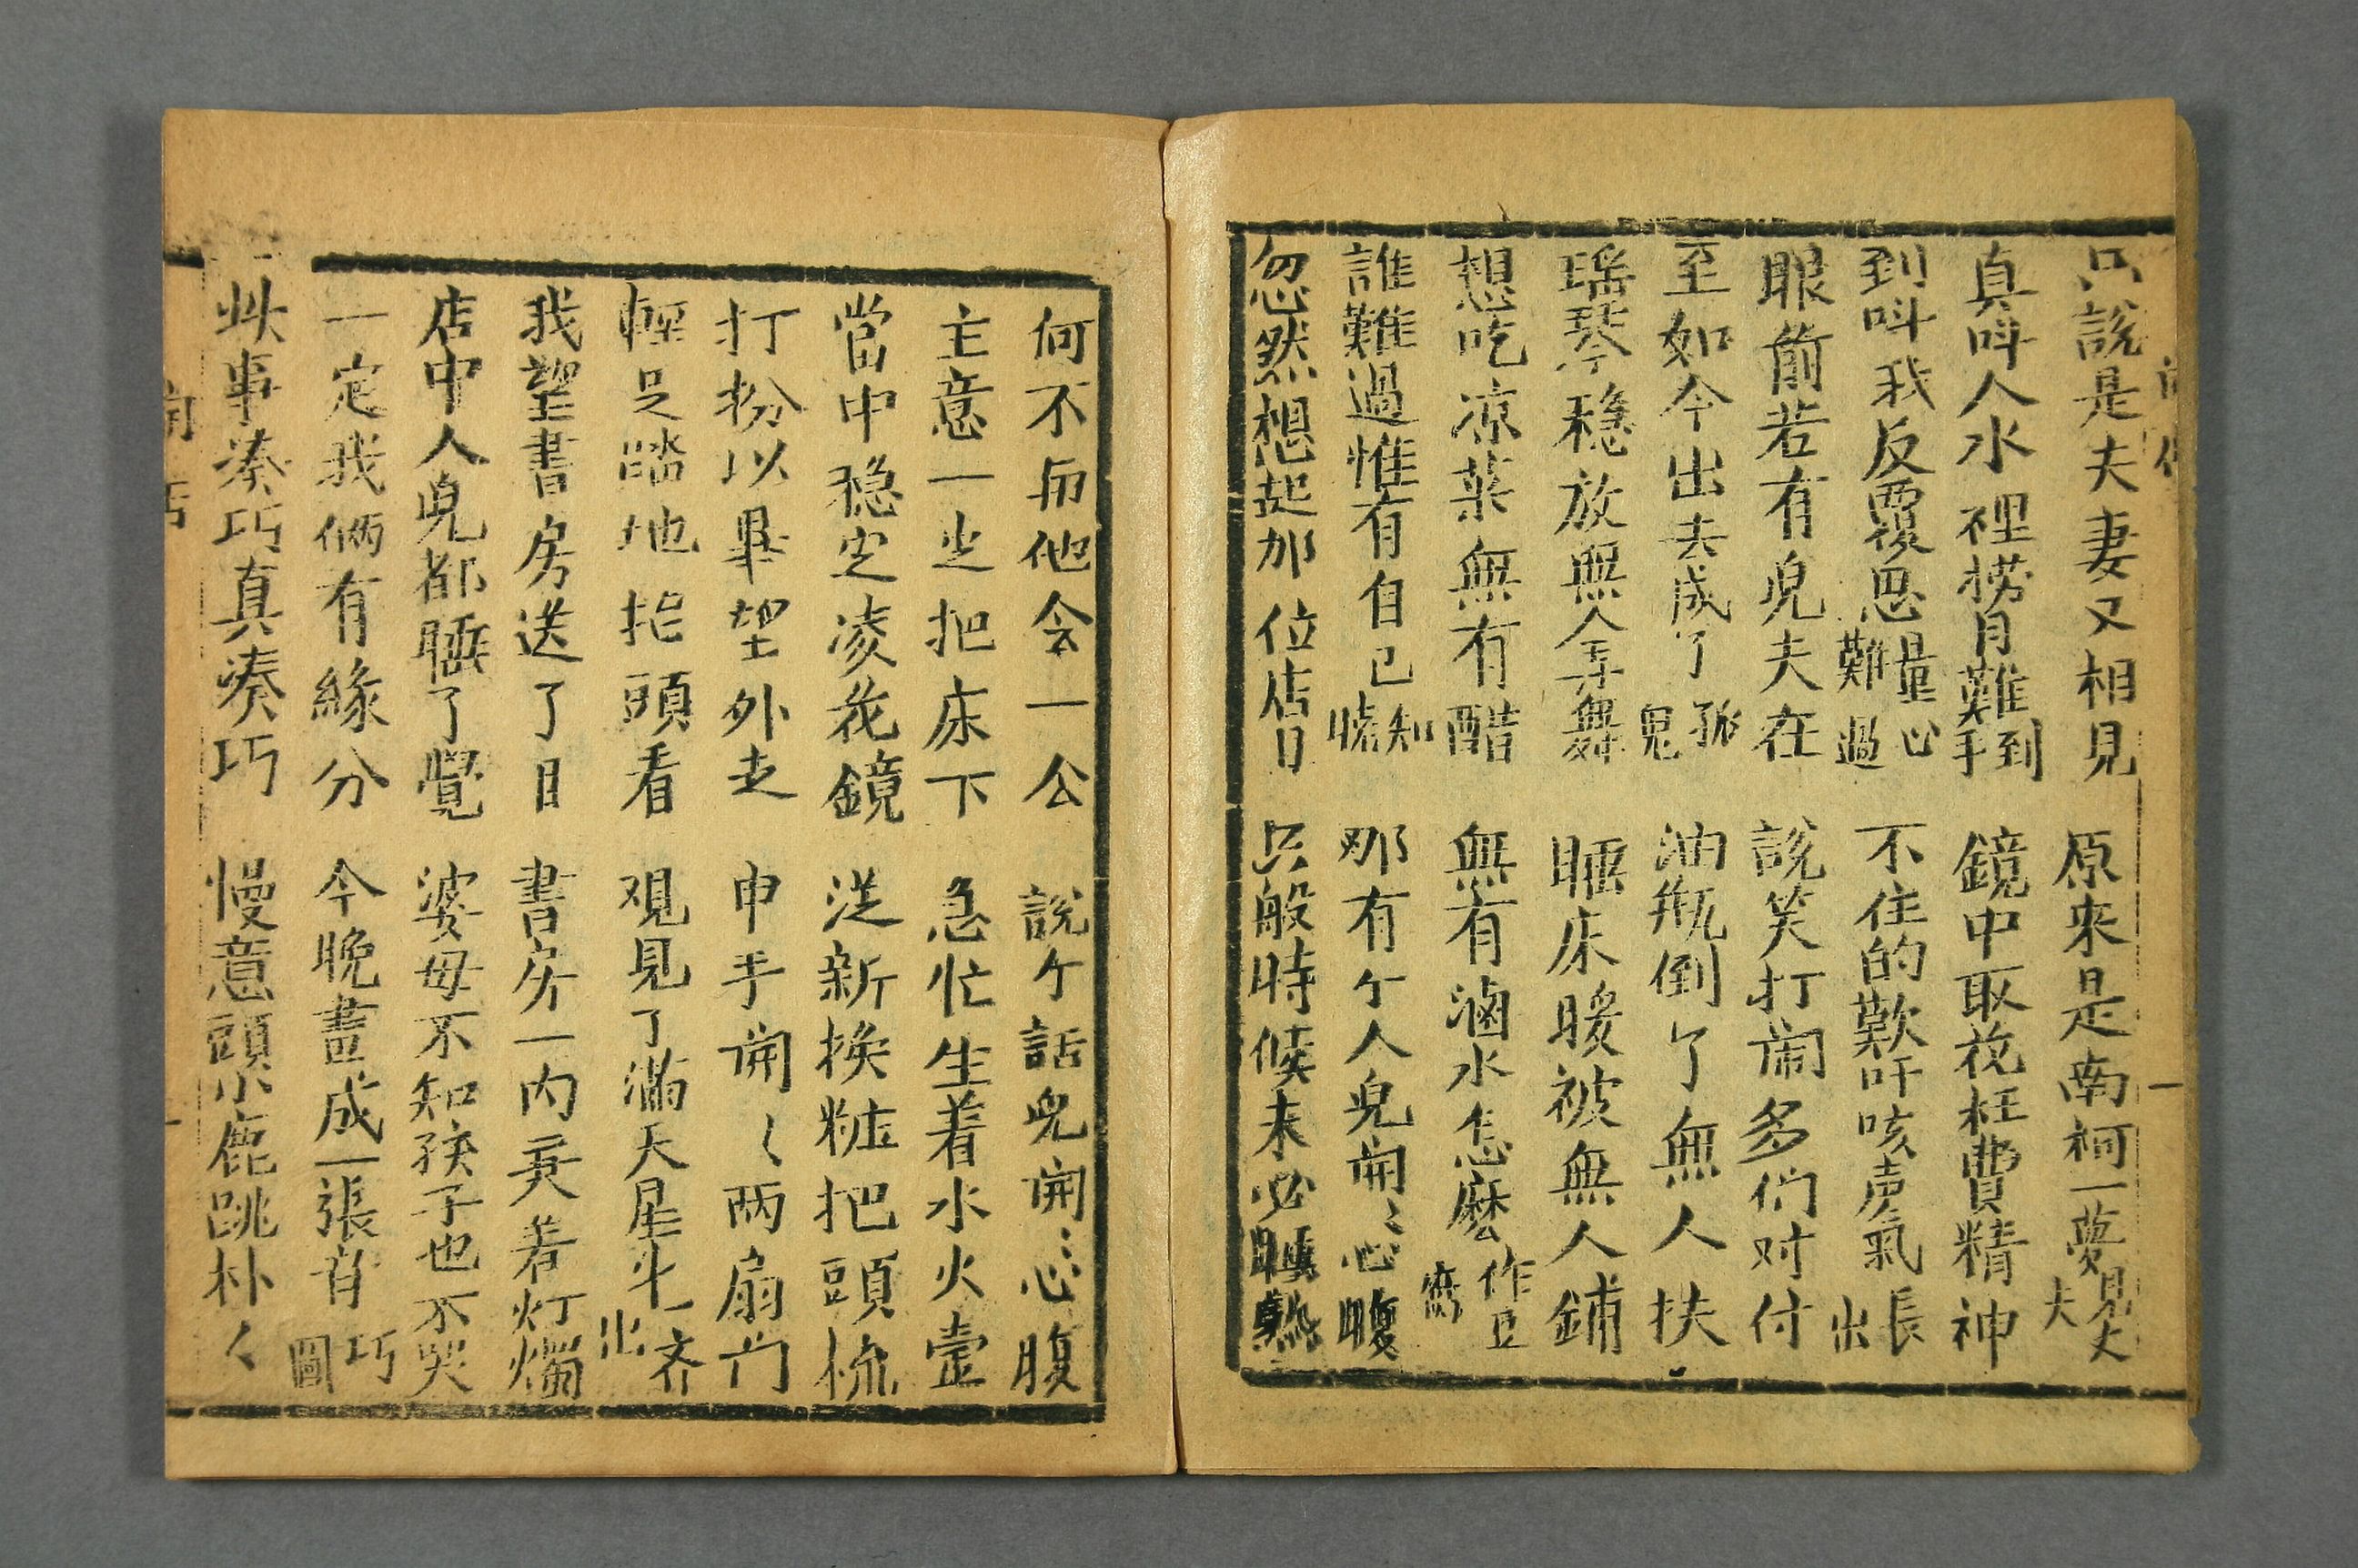 只說是夫妻又相見 原來是南柯一夢見丈夫
真呌人水裡撈月難到手 鏡中取花枉費精神
到呌我反覆思量心難過 不住的歎吁咳声氣長出
眼前若有児夫在 說笑打闹多們对付
至如今出去成了孤鬼 油瓶倒了無人扶
瑶琴穩放無人弄舞 睡床暖被無人鋪
想吃凉菜無有醋 無有滷水怎麽作豆腐
誰難過惟有自己知曉 那有个人児開〻心腹
忽然想起那位店日 只般時候未必睡熟
何不与他会一公 說个話児開〻心腹
主意一止把床下 急忙生着水火壺
當中穏定凌花鏡 从新换粧把頭梳
打扮以畢望外走 申手開〻两扇门
輕足踏地抬頭看 观見了滿天星斗一齐出
我望書房送了目 書房一内亮着灯燭
店中人児都睡了覺 婆母不知孩子也不哭
一定我俩有緣分 今晚畫成一張育巧圖
此事凑巧真凑巧 慢意頭小鹿跳朴〻